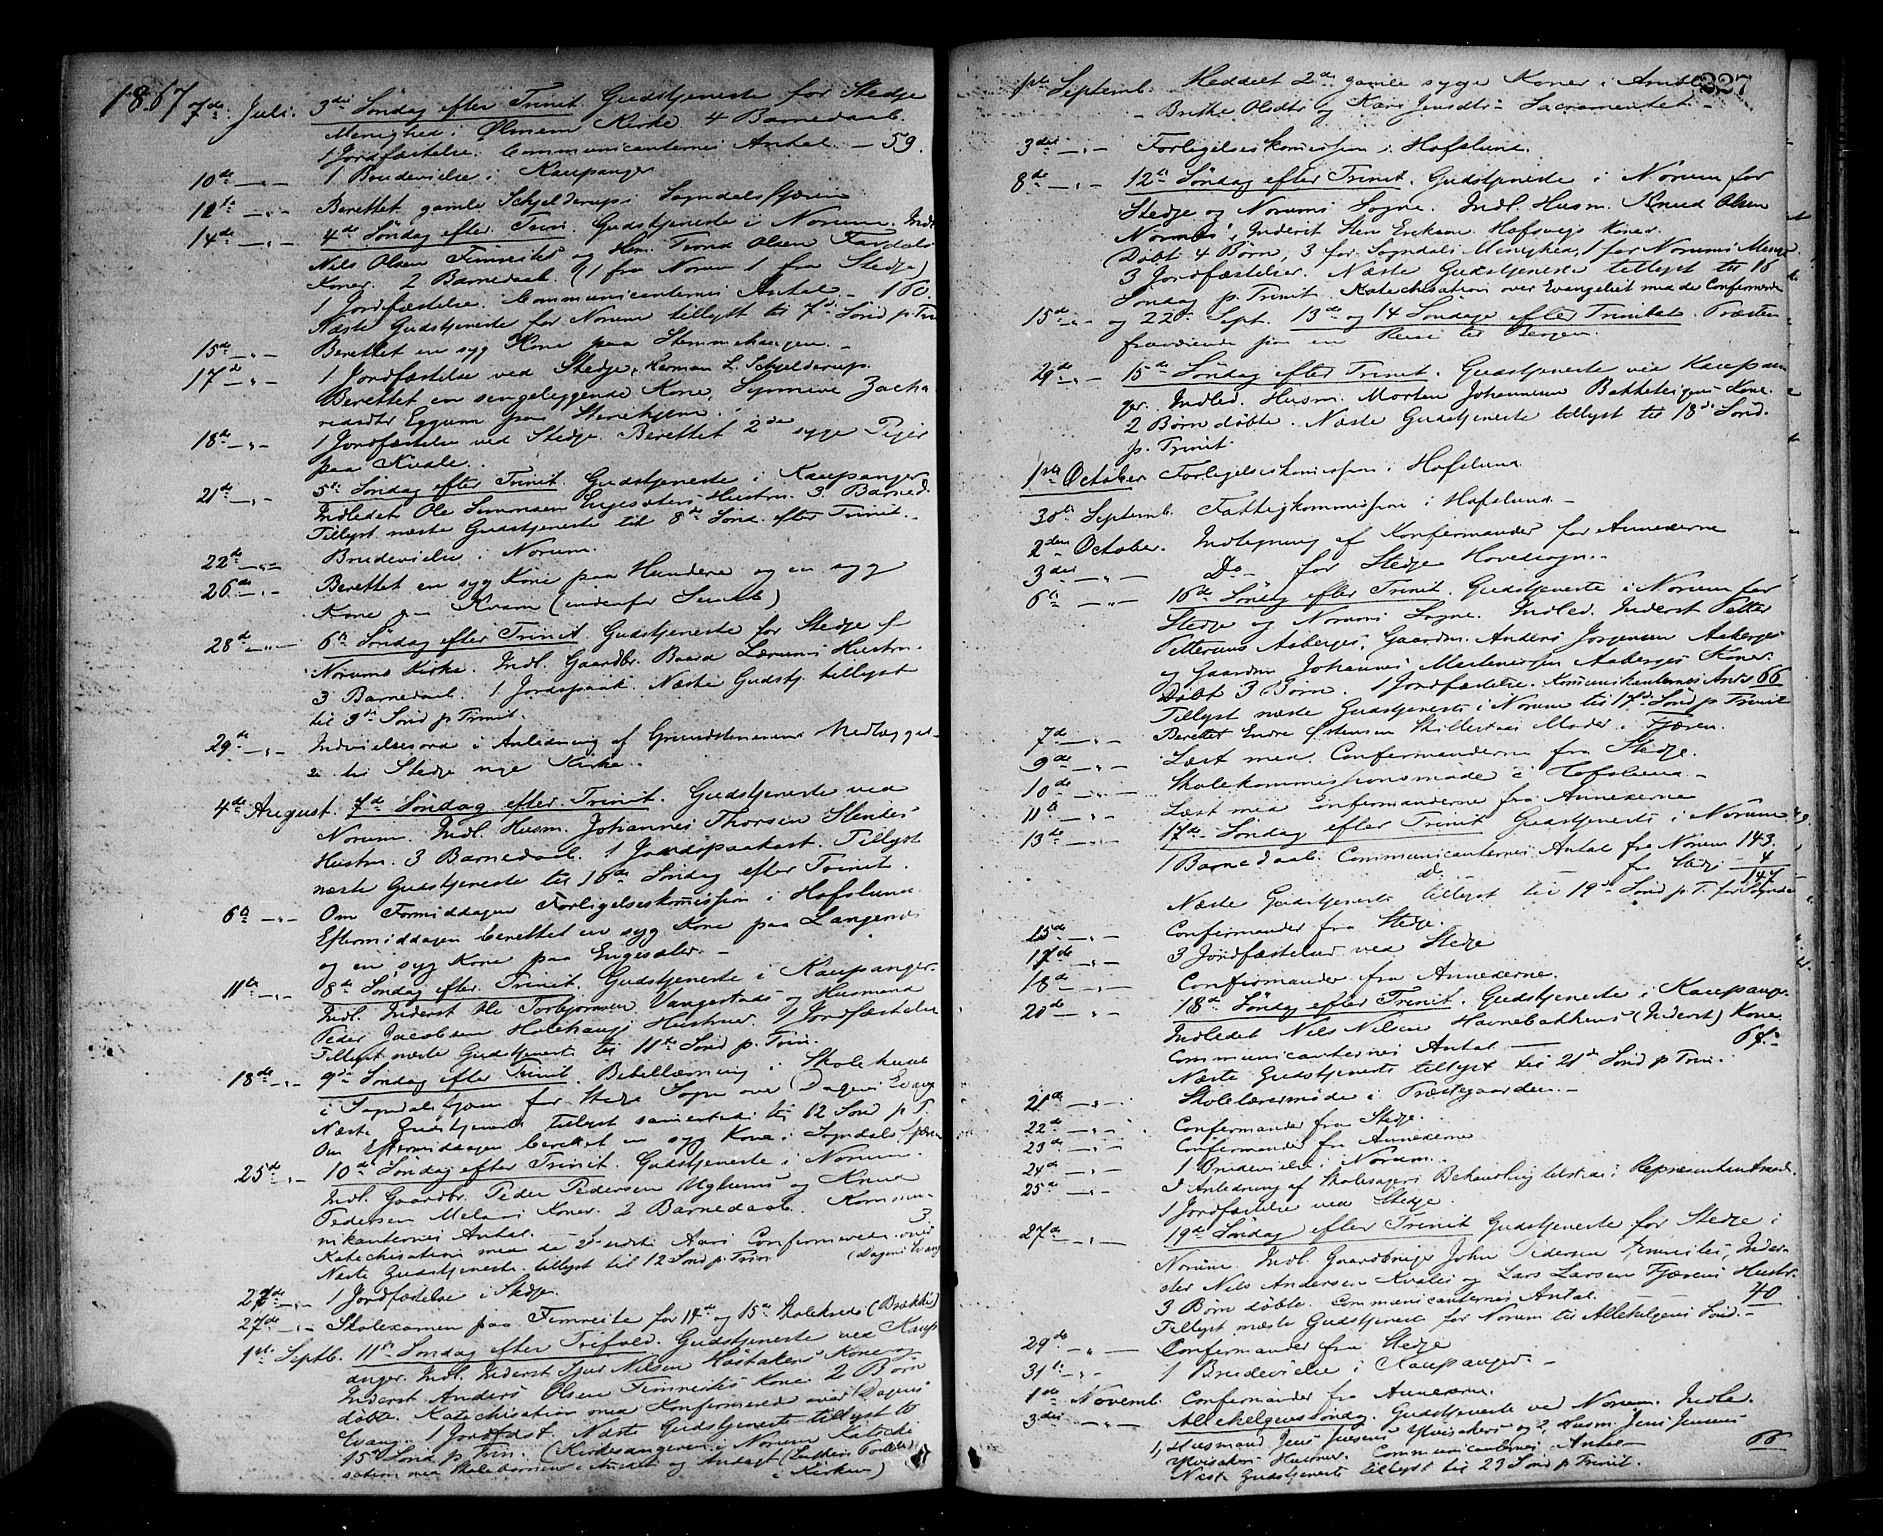 1867 7de Juli. 3die Søndag efter Trinit. Gudstjeneste for Stedje
Menighed i Ølmem Kirke 4 Barnedaab.
1 Jordfæstelse. Communicanternes Antal — 59.
10de —„— 1 Brudevielse i Kaupanger
—„— Berettet gamle Schjelderup i Sogndalsfjæren
14de —„— 4de Søndag efter Trin. Gudstjeneste i Norum. Indl
Nils Olsen Fimreites og Hsm. Trond Olsen
Koner. 2 Barnedaab. (1 fra Norum 1 fra Stedje)
1 Jordfæstelse. Communicanternes Antal —
Næste Gudstjeneste for Norum tillyst til 7de Sønd p Trin
15de —„— Berettet en syg Kone paa Stemmehaugen. —
17de —„— 1 Jordfæstelse ved Stedje, Herman L. Schjelderup.
Berettet en sengeliggende Kone, Synneve Zacha
riasdtr Eggum paa
18de —„— 1 Jordfæstelse ved Stedje. Berettet 2de syge Piger
paa Kvale.
21de —„— 5te Søndag efter Trinit. Gudstjeneste i Kaupanger
Indledet Ole Simonsen Engesæters Hustru. 3 Barned.
Tillyst næste Gudstjeneste til 8de Sønd. efter Trinit. —
22de —„— Brudevielse i Norum.
26de —„— Berettet en syg Kone paa Hundere og en syg
Kone paa Kvam (indenfor
28de —„— 6te Søndag efter Trinit. Gudstjeneste for Stedje i
Norums Kirke. Indl. Gaardbr. Baard Lærums Hustru.
3 Barnedaab. 1 Jordspaak. Næste Gudstj. tillyst
til 9de Sønd p Trinit.
29de —„— Indvielsesord i Anledning af Grundstenens Nedlæggel-
se til Stedje nye Kirke. —
4de August. 7de Søndag efter Trinit. Gudstjeneste ved
Norum. Indl. Husm. Johannes Thorsen Stendes
Hustru. 3 Barnedaab. 1 Jordspaakast. Tillyst
næste Gudstjeneste til 10de Søndag efter Trinit.
6te —„— Om Formiddagen Forligelseskomission i Hofslund
Eftermiddagen berettet en syg Kone paa
og en syg Kone paa Engesæter. —
11te —„— 8de Søndag efter Trinit. Gudstjeneste i Kaupanger.
Indl. Inderst Ole Torbjørnsen Vangestads og Husmand
Peder Jacobsen Holehaugs Hustruer. 1 Jordfæstelse
Tillyst næste Gudstjeneste til 11te Sønd p. Trin.
18de —„— 9de Søndag efter Trinit. Bibellæsning i Skolehuset
i Sogndalsfjæren for Stedje Sogn over Dagens Evang
Næste Gudstjeneste tillyst sammesteds til 12 Sønd p T.
Om Eftermiddagen berettet en syg Kone i Sogndalsfjæren
25de —„— 10de Søndag efter Trinit. Gudstjeneste i Norum.
Indl. Gaardbr. Peder Pedersen Uglums og Knud
Pedersen Koner. 2 Barnedaab. Kommu-
nikanternes Antal — 3
Katechisation med de sidste Aars Confirmerede over
Næste Gudstjeneste tillyst til 12 Sønd p. Trin (Dagens Evang
27de —„— 1 Jordfæstelse i Stedje.
27de —„— Skoleexamen paa Fimreite for 14de og 15de Skolekreds
1ste Septb. 11te Søndag efter Trefold. Gudstjeneste ved Kaup
anger. Indl. Inderst Nilsen Kone og
Inderst Anders Olsen Fimreites Kone 2 Børn
døbte. Katechisation med Konfirmerede over Dagens
Evang. 1 Jordfæst. Næste Gudstjeneste tillyst til
15 Sønd p. Trin. (Kirkesangeren i Norum Kateki
sation med Skolebørnene
i Kirken)
327
1ste Septemb. Meddelt 2de gamle syge Koner i
— Brithe Olsdtr og Kari Jensdtr — Sacramentet —
3die —„— Forligelseskomission i Hofslund.
8de —„— 12te Søndag efter Trinit. Gudstjeneste i Norum for
Stedje og Norums Sogne. Indl. Husm. Knud Olsen
Nornes, Inderst Sten Eriksen Hofsvegs Koner.
Døbt 4 Børn, 3 for Sogndals Menighed, 1 for Norums Menig
3 Jordfæstelser. Næste Gudstjeneste tillyst til 16
Søndag p. Trinit. Katechisation over Evangeliet med de Confirmerede
15de —„— og 22de Sept. 13de og 14 Søndage efter Trinitet. Præsten
fraværende paa en Reise til Bergen.
29de —„— 15de Søndag efter Trinit. Gudstjeneste ved Kaupan
ger. Indled. Husm. Morten Johannesen Bakketeigens Kone.
2 Børn døbte. Næste Gudstjeneste tillyst til 18de Sønd.
p. Trinit
1ste October Forligelseskomission i Hofslund
30te Septemb. Fattigkommission i Hofslund. —
2den October. Indtegning af Konfirmander for Annexerne
3die —„— Do for Stedje Hovedsogn. —
6te —„— 16de Søndag efter Trinit. Gudstjeneste i Norum for
Stedje og Norums Sogne. Indled. Inderst Petter
Pettersens Aabergs, Gaardm. Anders Jørgensen Aabergs
og Gaardm Johannes Martenussen Aabergs Koner.
Døbt 3 Børn. 1 Jordfæstelse. Kommunikanternes Antl 66
Tillyst næste Gudstjeneste i Norum til 17de Sønd p Trinit
7de —„— Berettet Endre Østensen Skillestads Moder i Fjæren.
9de —„— Læst med Confirmanderne fra Stedje.
10de —„— Skolekommissionsmøde i Hofslund —
11te —„— Læst med Confirmanderne fra Annexerne
13de —„— 17de Søndag efter Trinit Gudstjeneste i Norum
1 Barnedaab. Communicanternes Antal fra Norum 143.
do — fra Stedje — 4
147
Næste Gudstjeneste tillyst til 19de Sønd p T. for Sogndal
15de —„— Confirmander fra Stedje.
17de —„— 3 Jordfæstelser ved Stedje
18de —„— Confirmander fra Annexerne.
20de —„— 18de Søndag efter Trinit. Gudstjeneste i Kaupanger
Indledet Nils Nilsen Havnebakkens (Inderst) Kone
Communicanternes Antal —
Næste Gudstjeneste tillyst til 21de Sønd p Trin.
21de —„— Skolelærermøde i Præstegaarden. —
22de —„— Confirmander fra Stedje.
23de —„— Confirmander fra Annexerne
24de —„— 1 Brudevielse i Norum. —
25de —„— I Anledning af Skolesagens Behandling tilstede i Repræsentantmøde.
1 Jordfæstelse ved Stedje.
27de —„— 19de Søndag efter Trinit Gudstjeneste for Stedje i
Norum. Indl. Gaardbruger John Pedersen Fimreites, Inder-
ster Nils Andersen Kvales og Lars Larsen Fjærens Hustr.
3 Børn døbte. Communicanternes Antal. — 40
Tillyst næste Gudstjeneste for Norum til Allehelgens Sønd. —
29de —„— Confirmander fra Stedje
31te —„— 1 Brudevielse i Kaupanger. —
1ste Novemb. Confirmander fra Annexerne.
3die —„— Allehelgenssøndag. Gudstjeneste ved Norum. Indle.
1, Husmand Jens Jensens Ylvisakers og 2, Husm Jens Jensens
Ylvisaker Hustruer. Communicanternes Antal —
Næste Gudstjeneste tillyst til 23 Sønd p Trinit.